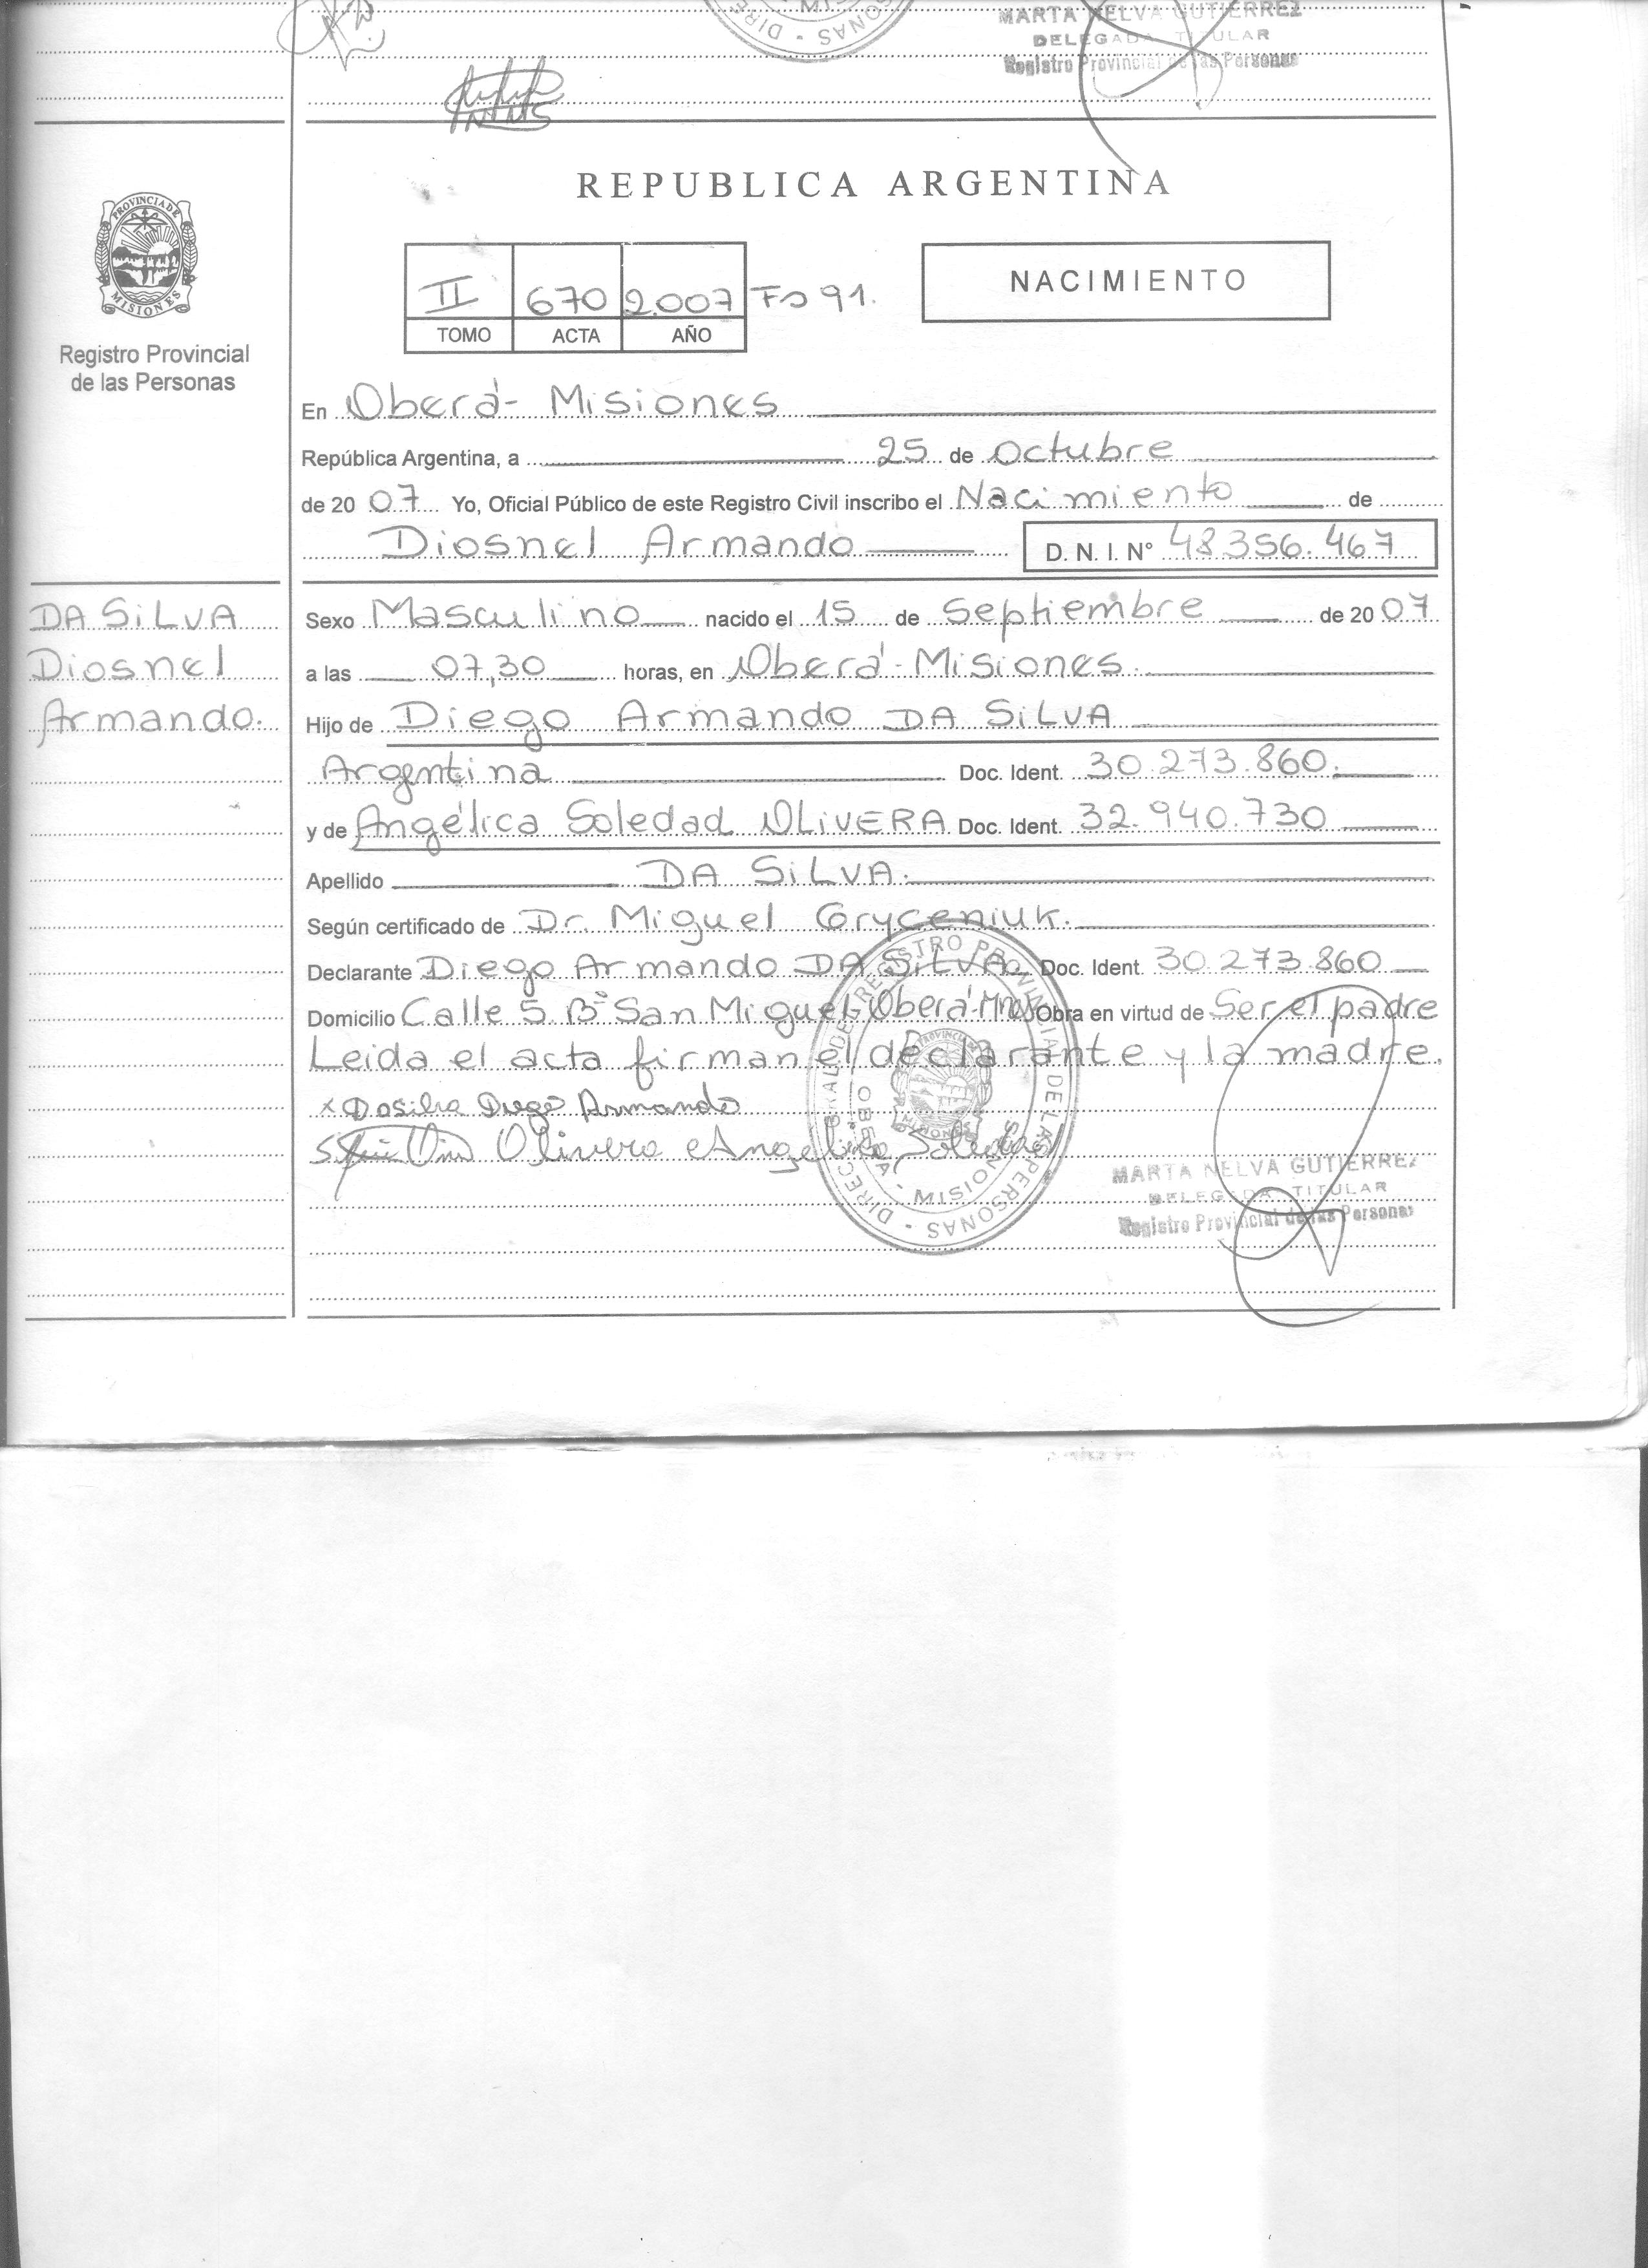 MARTA NELVA GUTIERREZ
DELEGADA TITULAR
Registro Provincial de las Personas
REPUBLICA ARGENTINA
PROVINCIA DE MISIONES
Registro Provincial
de las Personas
II 670 2.007 Fº 91.
TOMO ACTA AÑO
NACIMIENTO
En Oberá - Misiones
República Argentina, a 25 de Octubre
de 20 07 Yo, Oficial Público de este Registro Civil inscribo el Nacimiento de
Diosnel Armando D. N. I. N° 48.356.467
DA SiLVA
Diosnel
Armando.
Sexo Masculino nacido el 15 de Septiembre de 20 07
a las 07,30 horas, en Oberá - Misiones.
Hijo de Diego Armando DA SiLVA
Argentina Doc. Ident. 30.273.860.
y de Angélica Soledad OLiVERA Doc. Ident. 32.940.730
Apellido DA SiLVA.
Según certificado de Dr. Miguel Gryceniuk.
Declarante Diego Armando DA SiLVA Doc. Ident. 30.273.860
Domicilio Calle 5 Bº San Miguel - Oberá - Mnes Obra en virtud de Ser el padre
Leida el acta firman el declarante y la madre.
x Dasilva Diego Armando
Olivera Angelica Soledad
DIRECC. GRAL. DE REGISTRO PROVINCIAL DE LAS PERSONAS
OBERA - MISIONES
MARTA NELVA GUTIERREZ
DELEGADA TITULAR
Registro Provincial de las Personas